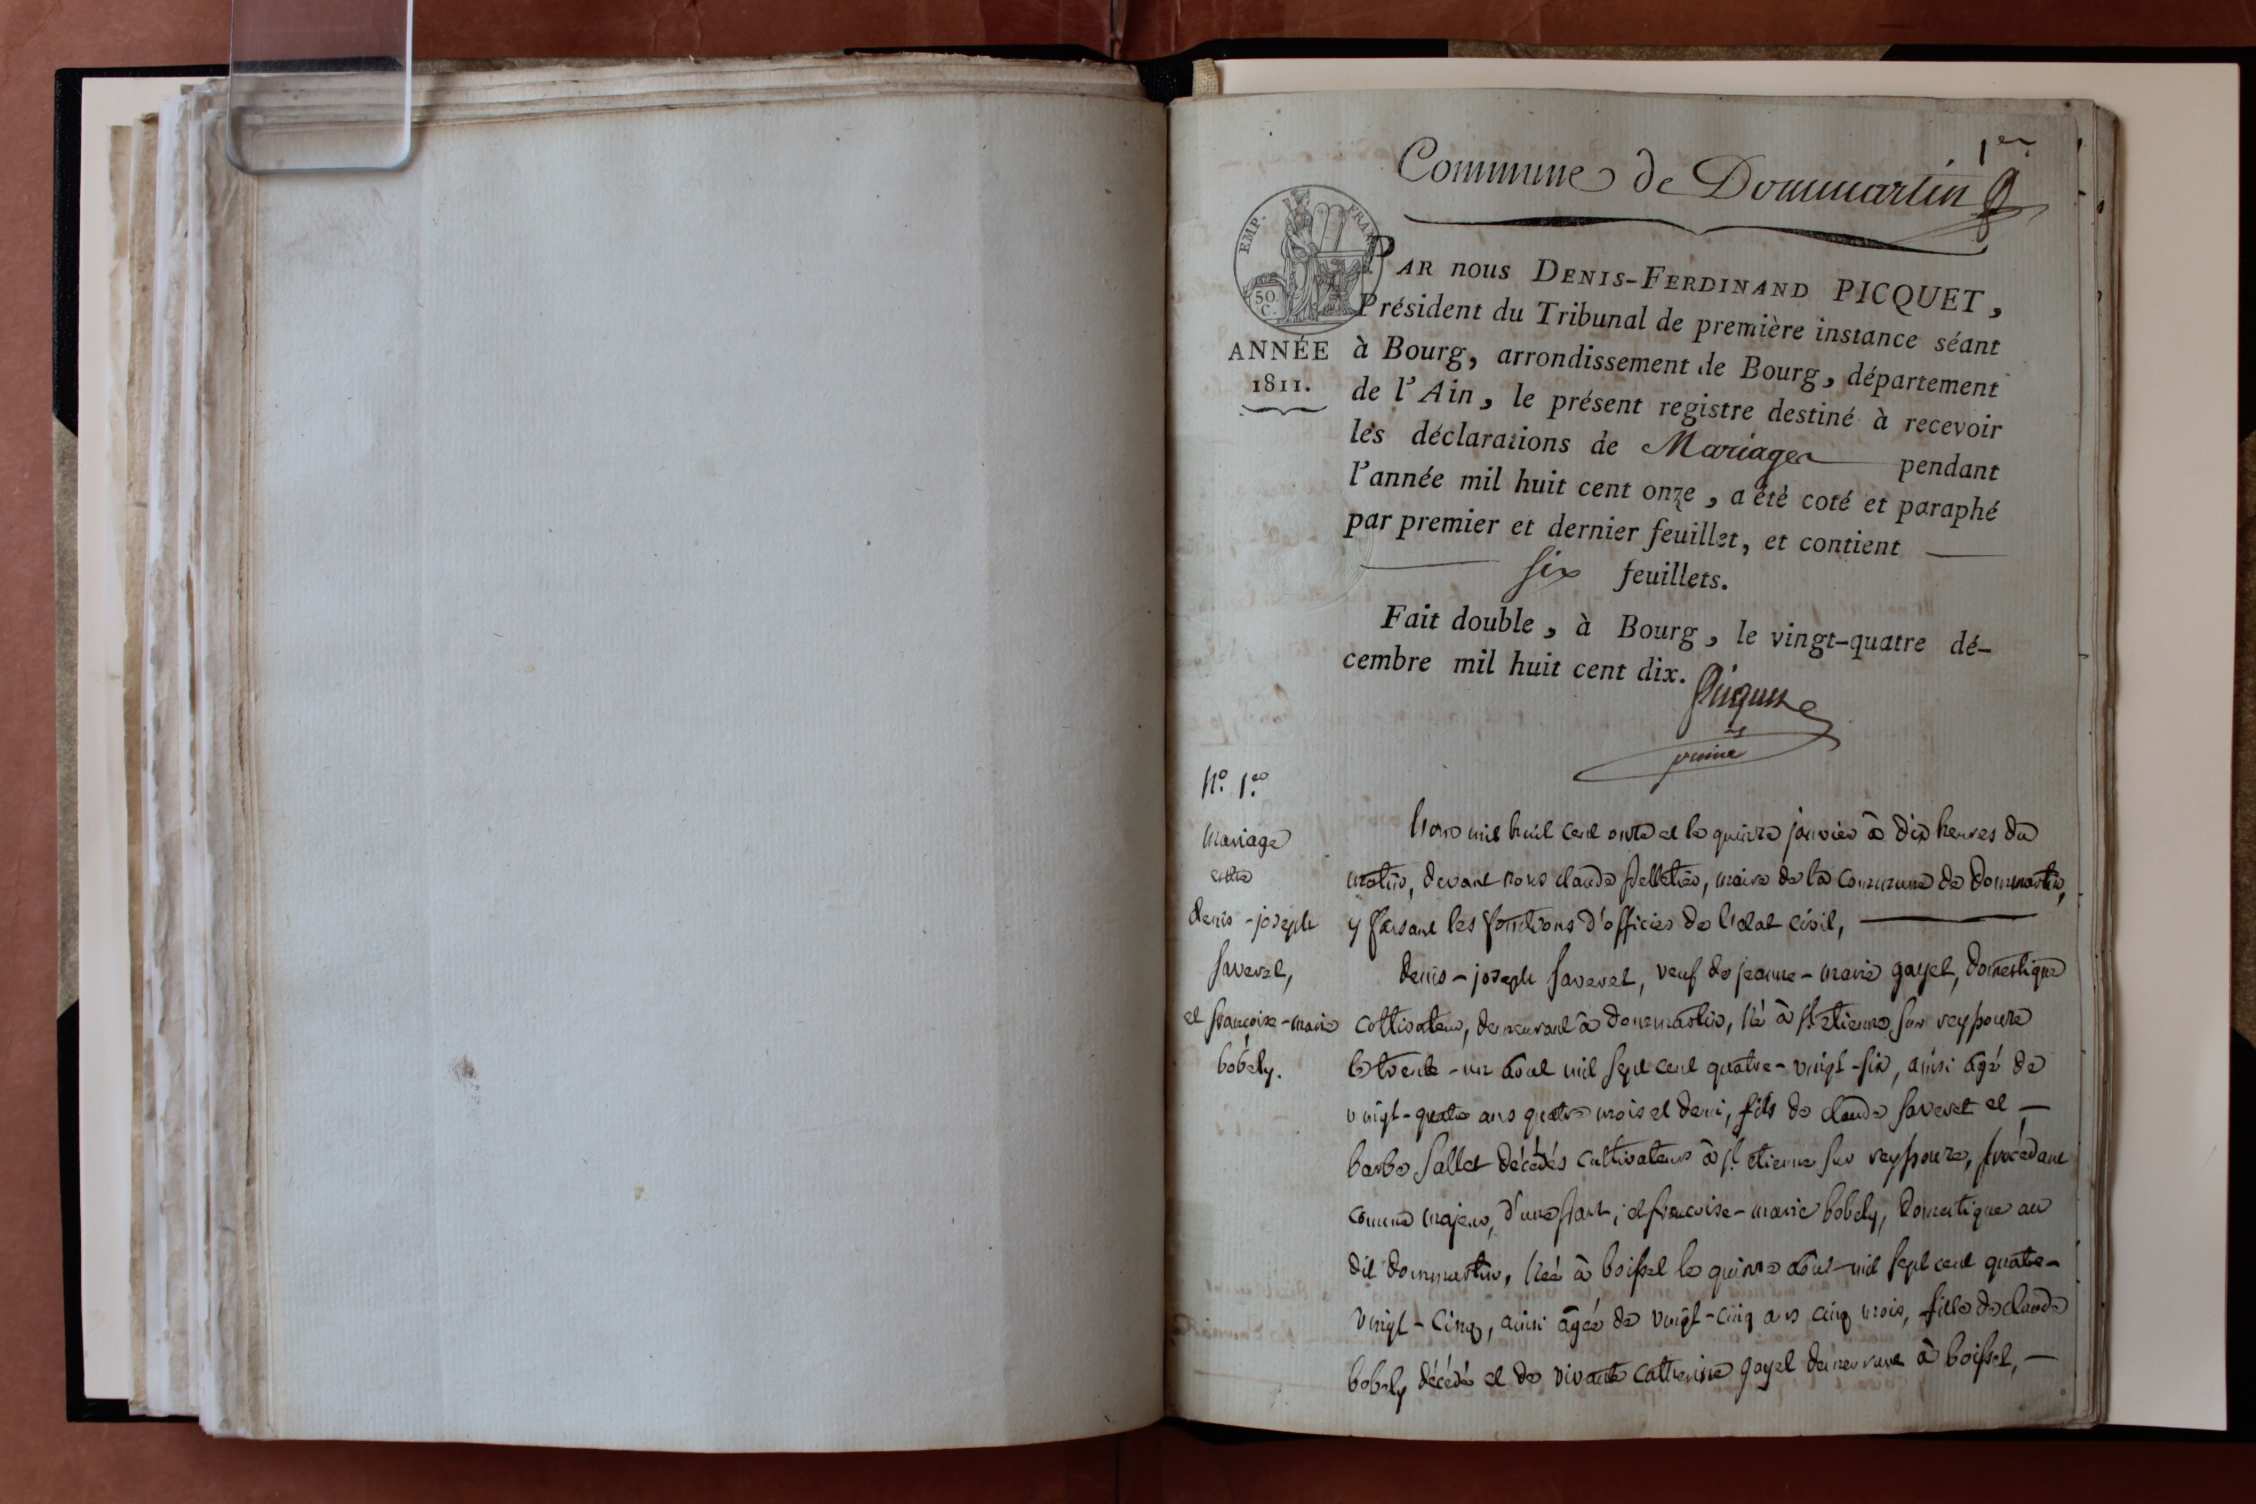 1er
Commune de Dommartin
EMP. FRAN.
50 C.
PAR nous DENIS-FERDINAND PICQUET,
Président du Tribunal de première instance séant
ANNÉE
1811.
à Bourg, arrondissement de Bourg, département
de l'Ain, le présent registre destiné à recevoir
les déclarations de Mariages pendant
l'année mil huit cent onze, a été coté et paraphé
par premier et dernier feuillet, et contient
six feuillets.
Fait double, à Bourg, le vingt-quatre dé-
cembre mil huit cent dix.
Picquet
N.o 1.er
Mariage
entre
denis-joseph
faveret,
et françoise-marie
bobély.
L'an mil huit cent onze et le quinze janvier à dix heures du
matin, devant nous claude pelletier, maire de la commune de dommartin,
y faisant les fonctions d'officier de l'état civil,
denis-joseph faveret, veuf de jeanne-marie gayet, domestique
coltivateur, demeurant à dommartin, né à st etienne sur reyssouze
le trente-un aout mil sept cent quatre-vingt-six, ainsi agé de
vingt-quatre ans quatre mois et demi, fils de claude faveret et
barbe sallet décédés cultivateurs à st etienne sur reyssouze, procédant
comme majeur, d'une part, et françoise-marie bobély, domestique au
dit dommartin, née à boissel le quinze août mil sept cent quatre-
vingt-cinq, ainsi agée de vingt-cinq ans cinq mois, fille de claude
bobely décédé et de vivante catherine gayet demeurant à boissel,